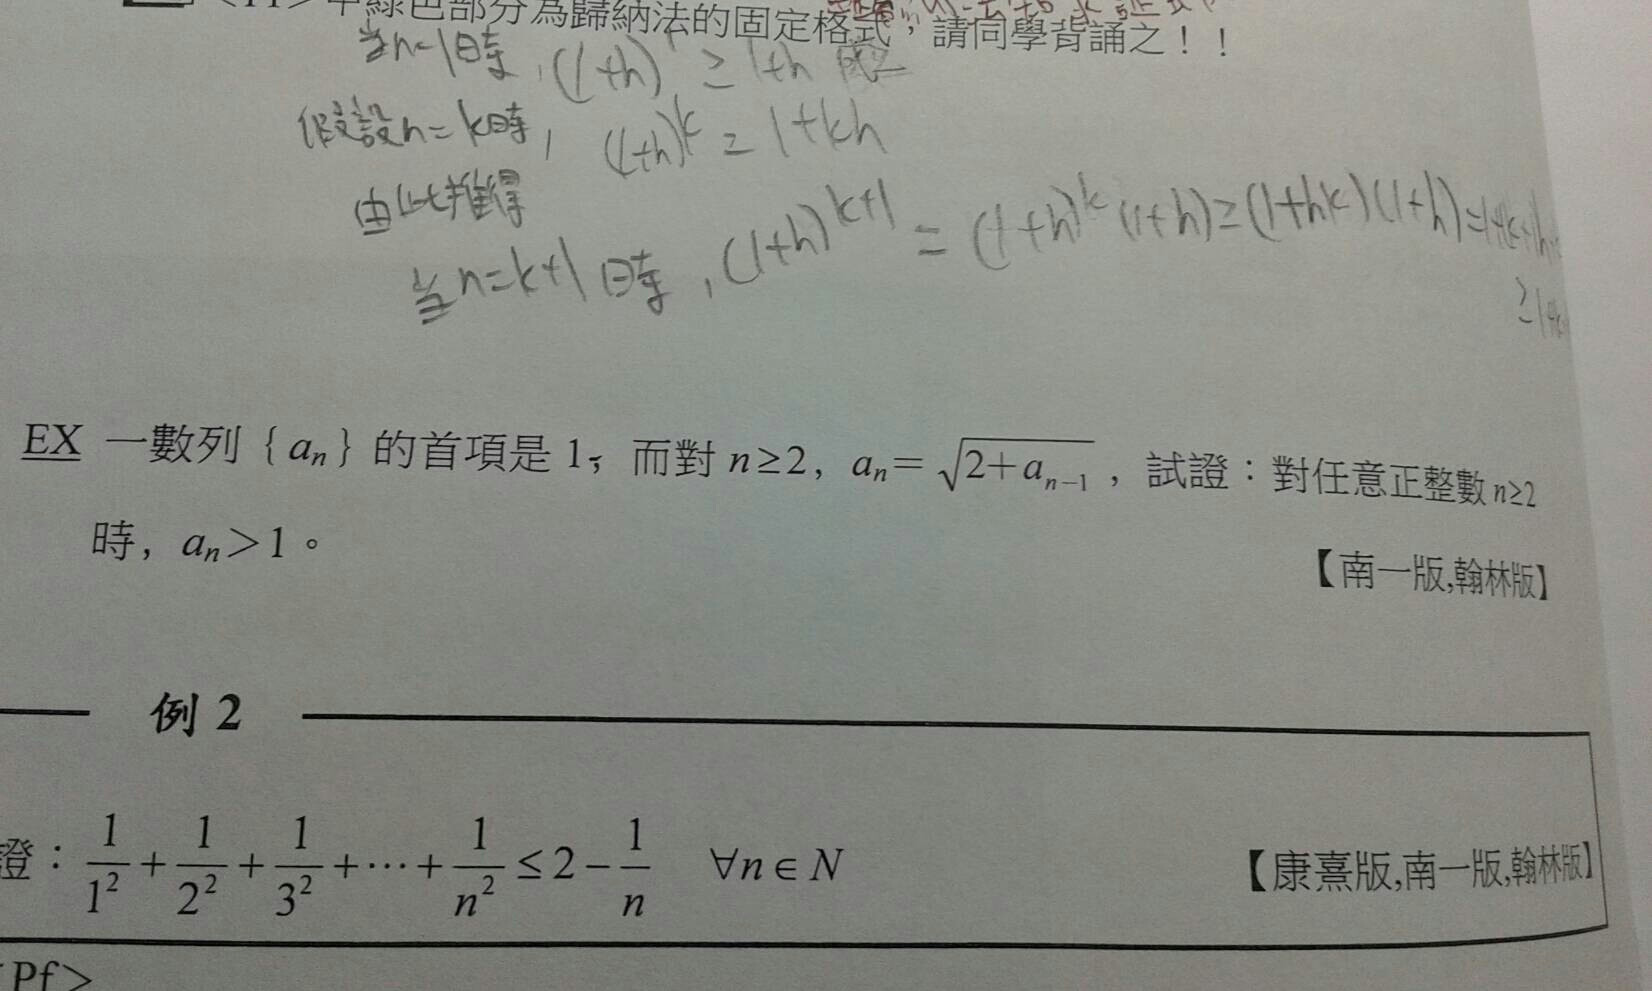 中綠色部分為歸納法的固定格式，請同學背誦之！！
當n=1時，(1+h)^1 ≥ 1+h 成立
假設n=k時，(1+h)^k ≥ 1+kh
由此推得
當n=k+1時，(1+h)^{k+1} = (1+h)^k (1+h) ≥ (1+hk)(1+h) =
EX 一數列{a_n}的首項是1，而對n≥2，a_n=√(2+a_{n-1})，試證：對任意正整數n≥2
時，a_n>1。
【南一版,翰林版】
例2
證：1/1^2+1/2^2+1/3^2+⋯+1/n^2≤2-1/n ∀n∈N 【康熹版,南一版,翰林版】
Pf>